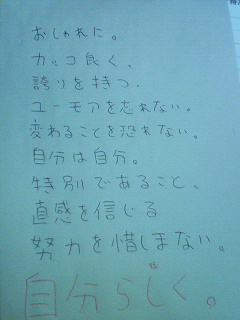 おしゃれに。
カッコ良く、
誇りを持つ、
ユーモアを忘れない。
変わることを恐れない。
自分は自分。
特別であること、
直感を信じる
努力を惜しまない。
自分らしく。